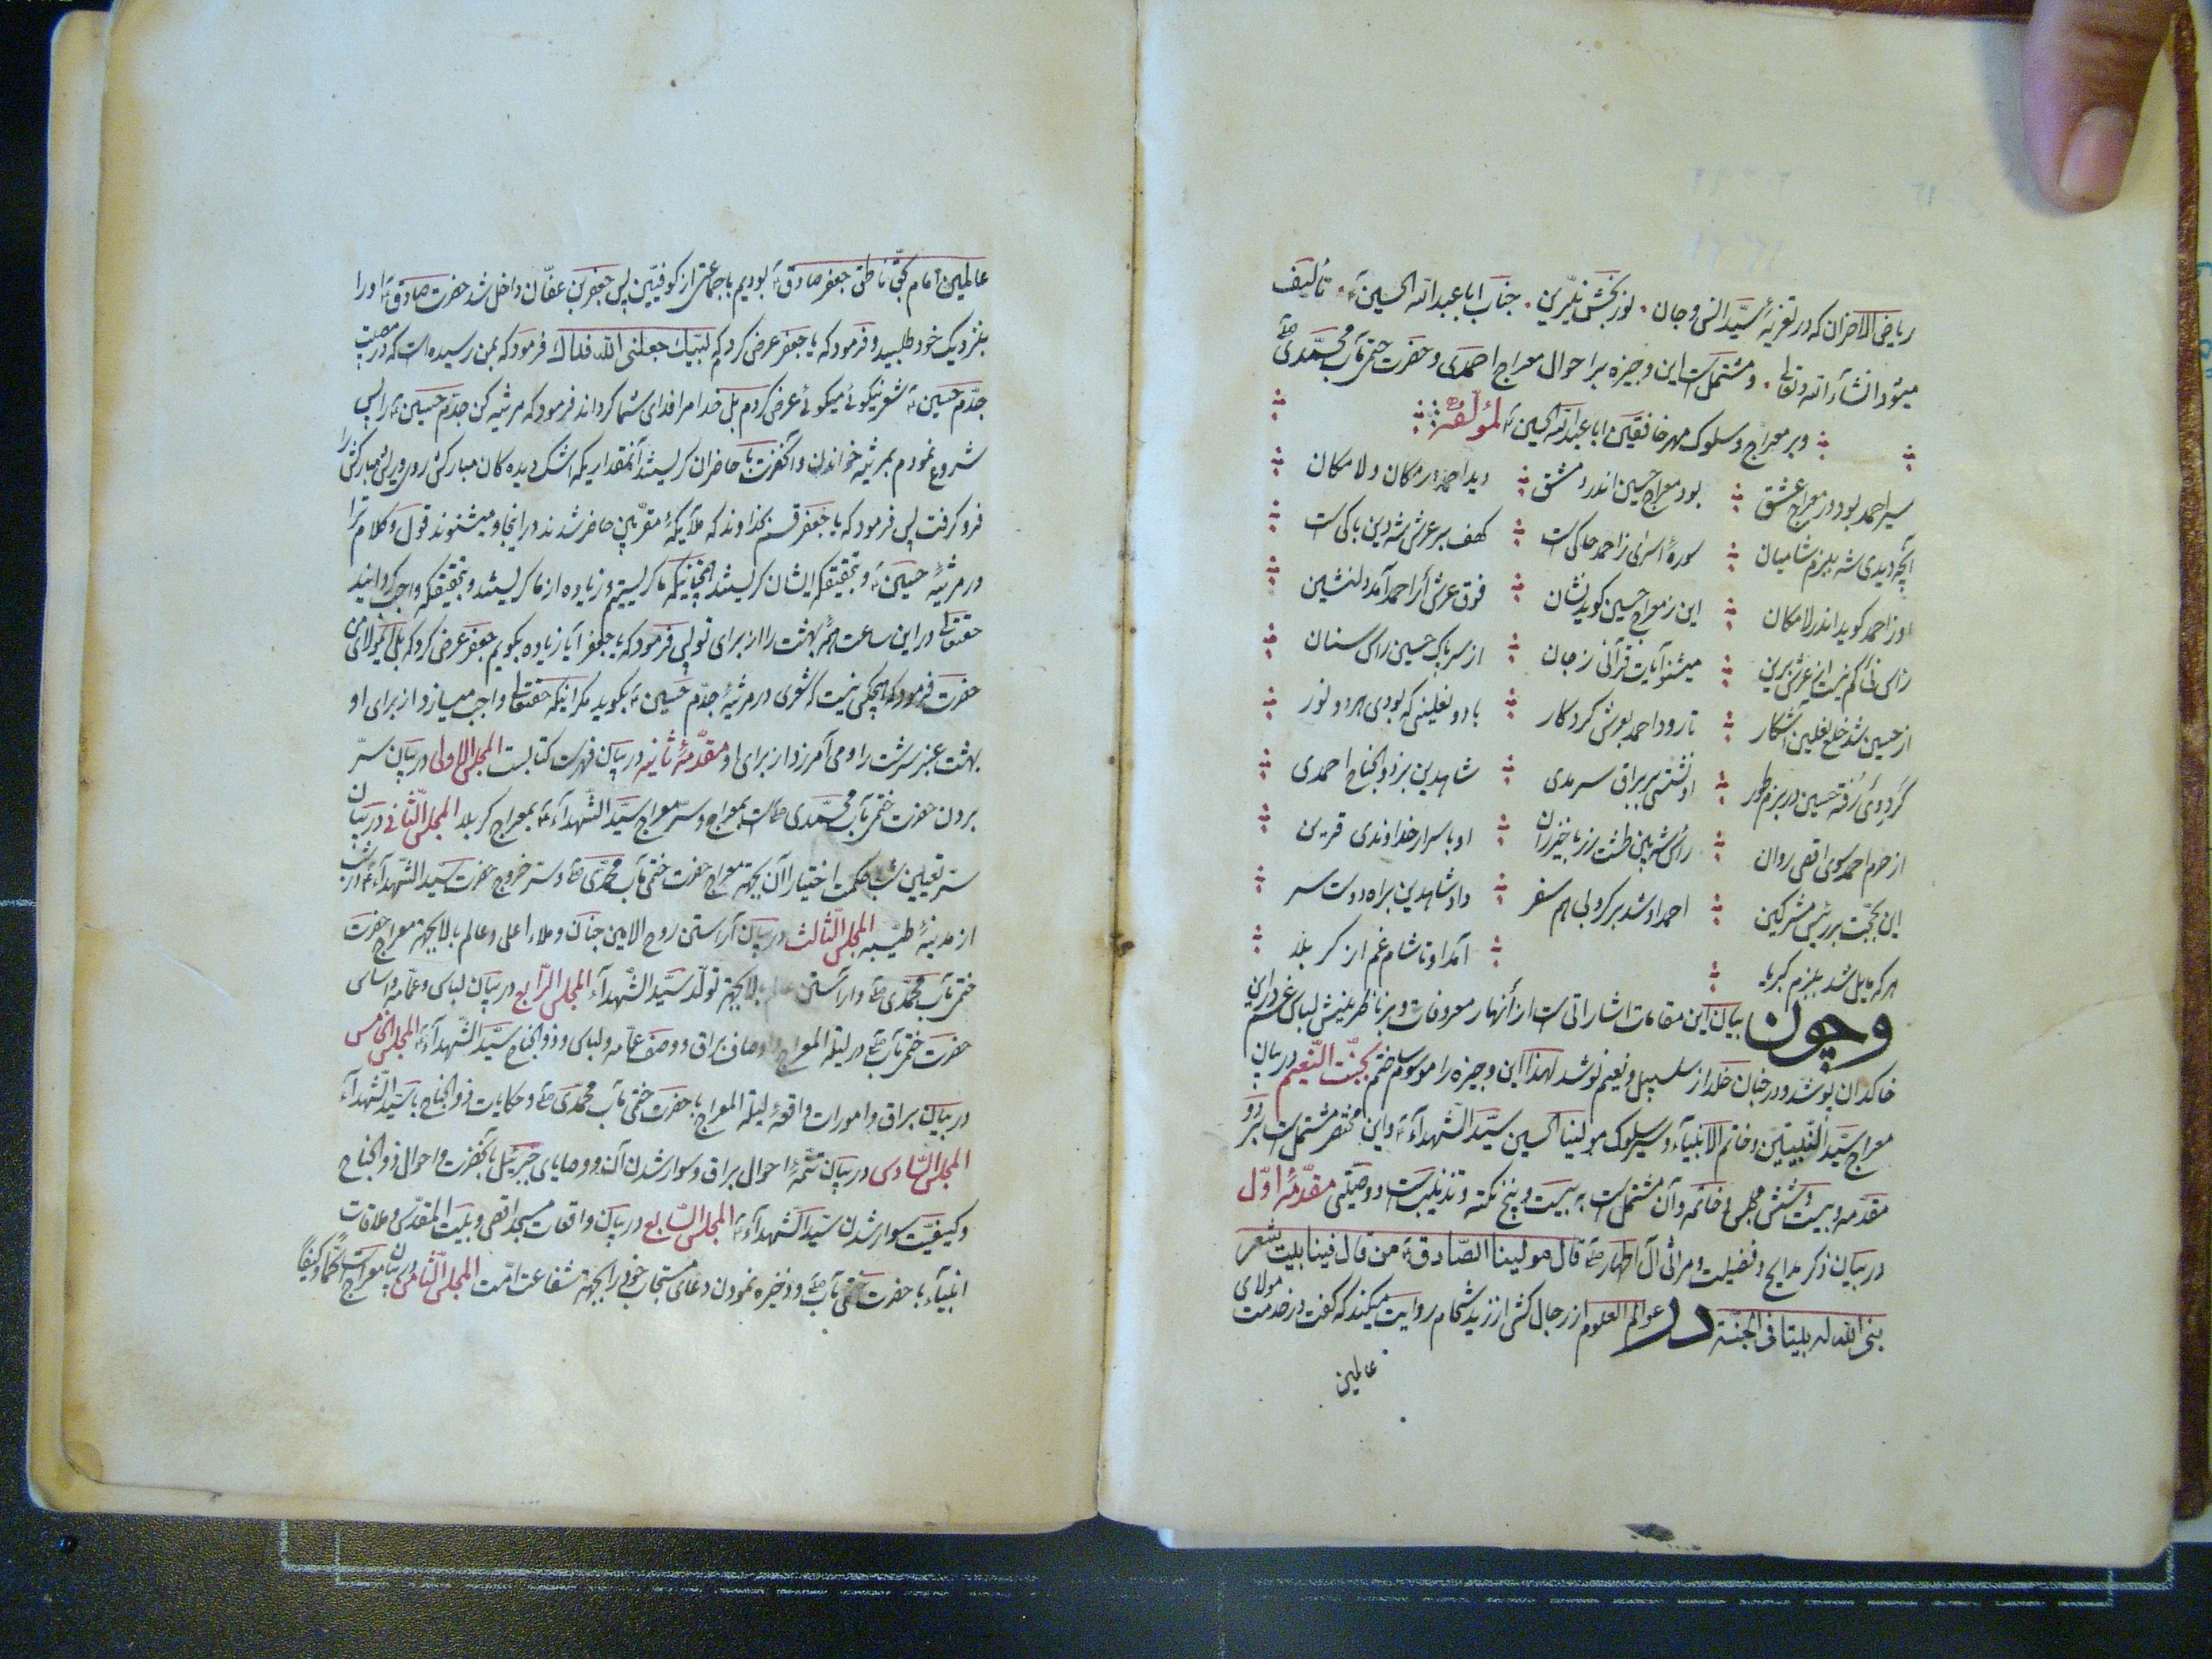 ریاض الاحزان که در تعزیهٔ سیّد انس و جان نور بخش نیّرین جناب ابا عبداللّه الحسین تألیف
میشود انشآء اللّه و تعالی و مشتملست این وجیزه بر احوال معراج احمدی و حضرت ختمی مآب محمّدی
و بر معراج و سلوک مهر خافقین ابا عبداللّه الحسین لمؤلّفه
سیر احمد بود در معراج عشق بود معراج حسین اندر دمشق دید احمد در مکان و لا مکان
آنچه دیدی شه ببزم شامیان سورهٔ اسری ز احمد حاکی است کهف بر عرش شه دین باکی است
او ز احمد گوید اندر لامکان این ز معراج حسین گوید نشان فوق عرش ار احمد آمد دلنشین
رأس نی کم نیست از عرش برین میشنو آیات قرآنی ز جان از سر پاک حسین رأس سنان
از حسین شد خلع نعلین آشکار تا رود احمد بسوی کردکار با دو نعلینی که بودی هر دو نور
حسین در بزم طور او نشستی بر براق سرمدی شاه دین بر ذو الجناح احمدی
از حرم احمد سوی اقصی روان رأس شه بین طشت زر با خیزران او باسرار خداوندی قرین
این بحجّت بر رئیس مشرکین احمد او شد بر کروبی هم سفر داد شاه دین براه دوست سر
هر که مایل شد ببزم کبریا آمد او تا شام غم از کربلا
وچون بیان این مقامات اشاراتی است از أنهار معروفات و هر ناظر بینش لباس غم در این
خاکدان پوشد و در جنان خلد از سلسبیل و نعیم نوشد لهذا این وجیزه را موسوم ساختم بجنّت النّعیم در بیان
معراج سیّد النّبیّین و خاتم الانبیآء و سیر سلوک مولینا الحسین سیّد الشّهدآء و این مختصر مشتملست بر دو
مقدّمه و بیست و شش مجلس و خاتمه و آن مشتملست بر بیست و پنج نکته و تذنیبست و وصیّتی مقدّمهٔ اوّل
در بیان ذکر مدایح و فضیلت و مراثی آل اطهار قال مولینا الصّادق من قال فینا بیت شعر
بنی اللّه له بیتا فی الجنّة در عوالم العلوم از رجال کشی از زید شحام روایت میکند که گفت در خدمت مولای
عالمین
عالمین امام بحقّ ناطق جعفر صادق بودیم با جماعتی از کوفیّین پس جعفر بن عفّان داخل شد حضرت صادق او را
بنزدیک خود طلبید و فرمود که یا جعفر عرض کرد که لبّیك جعلنی اللّه فداك فرمود که بمن رسیده است که در مصیبت
جدّم حسین شعر نیکوئی میگوئی عرض کردم بلی خدا مرا فدای شما گرداند فرمود که مرثیه کن جدّم حسین را پس
شروع نمودم بمرثیه خواندن و آنحضرت با حاضران گریستند آنمقداریکه اشک دیده گان مبارکش روی و ریش مبارکش را
فرو گرفت پس فرمود که یا جعفر قسم بخداوند که ملآیکهٔ مقرّبین حاضر شدند در اینجا و میشنوند قول و کلام ترا
در مرثیهٔ حسین و بتحقیقکه ایشان گریستند همچنانیکه ما گریستیم و زیاده از ما گریستند و بتحقیقکه واجب گردانید
حقتعالی در این ساعت همهٔ بهشت را از برای تو پس فرمود که یا جعفر آیا زیاده بگویم جعفر عرض کرد که بلی ایمولای من
حضرت فرمود که هیچکس نیست که شعری در مرثیهٔ جدّم حسین بگوید مگر اینکه حقتعالی واجب میسازد از برای او
بهشت عنبر سرشت را و می آمرزد از برای او مقدّمهٔ ثانیه در بیان فهرست کتابست المجلس الاولی در بیان سرّ
بردن حضرت ختمی مآب محمّدی است بمعراج و سرّ معراج سیّد الشّهدآء بمعراج کربلا المجلس الثّانی در بیان
سرّ تعیین شب و حکمت اختیار آن بجهة معراج حضرت ختمی مآب محمّدی و سرّ خروج حضرت سیّد الشّهدآء در شب
از مدینهٔ طیّبه المجلس الثّالث در بیان آراستن روح الامین جنان و ملاء اعلی و عالم بالا بجهة معراج حضرت
ختمی مآب محمّدی و آراستن عالم بالا بجهة تولّد سیّد الشّهدآء المجلس الرّابع در بیان لباس و عمّامه و اساس
حضرت ختمی مآب در لیلة المعراج و اوصاف براق و وصف عمّامه و لباس و ذو الجناح سیّد الشّهدآء المجلس الخامس
در بیان براق و امورات واقعهٔ لیلة المعراج با حضرت ختمی مآب محمّدی و حکایت ذو الجناح با سیّد الشّهدآء
المجلس السّادس در بیان تتمّهٔ احوال براق و سوار شدن آن و وصایای جبرئیل بآنحضرت و احوال ذو الجناح
و کیفیّت سوار شدن سیّد الشّهدآء المجلس السّابع در بیان واقعات مسجد اقصی و بیت المقدّس و ملاقات
انبیآء با حضرت ختمی مآب و ذخیره نمودن دعای مستجاب خود را بجهة شفاعت امّت المجلس الثّامن در بیان معراجست کمّا و کیفاً